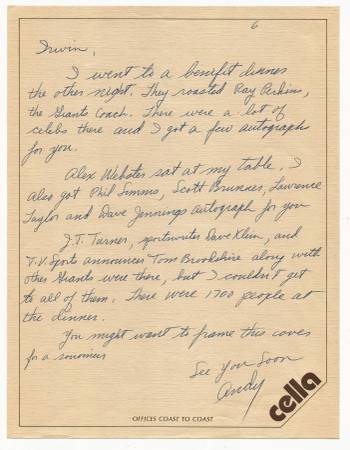 6
Irwin,
I went to a benefit dinner
the other night. They roasted Ray Perkins,
the Giants Coach. There were a lot of
celebs there and I got a few autographs
for you.
Alex Webster sat at my table. I
Also got Phil Simms, Scott Brunner, Lawrence
Taylor and Dave Jennings autograph for you
J.T. Turner, sportswriter Dave Klein, and
T.V. Sports announcer Tom Brookshire along with
other Giants were there, but I couldn't get
to all of them. There were 1700 people at
the dinner.
You might want to frame this
for a
See You Soon
Andy
cella
OFFICES COAST TO COAST